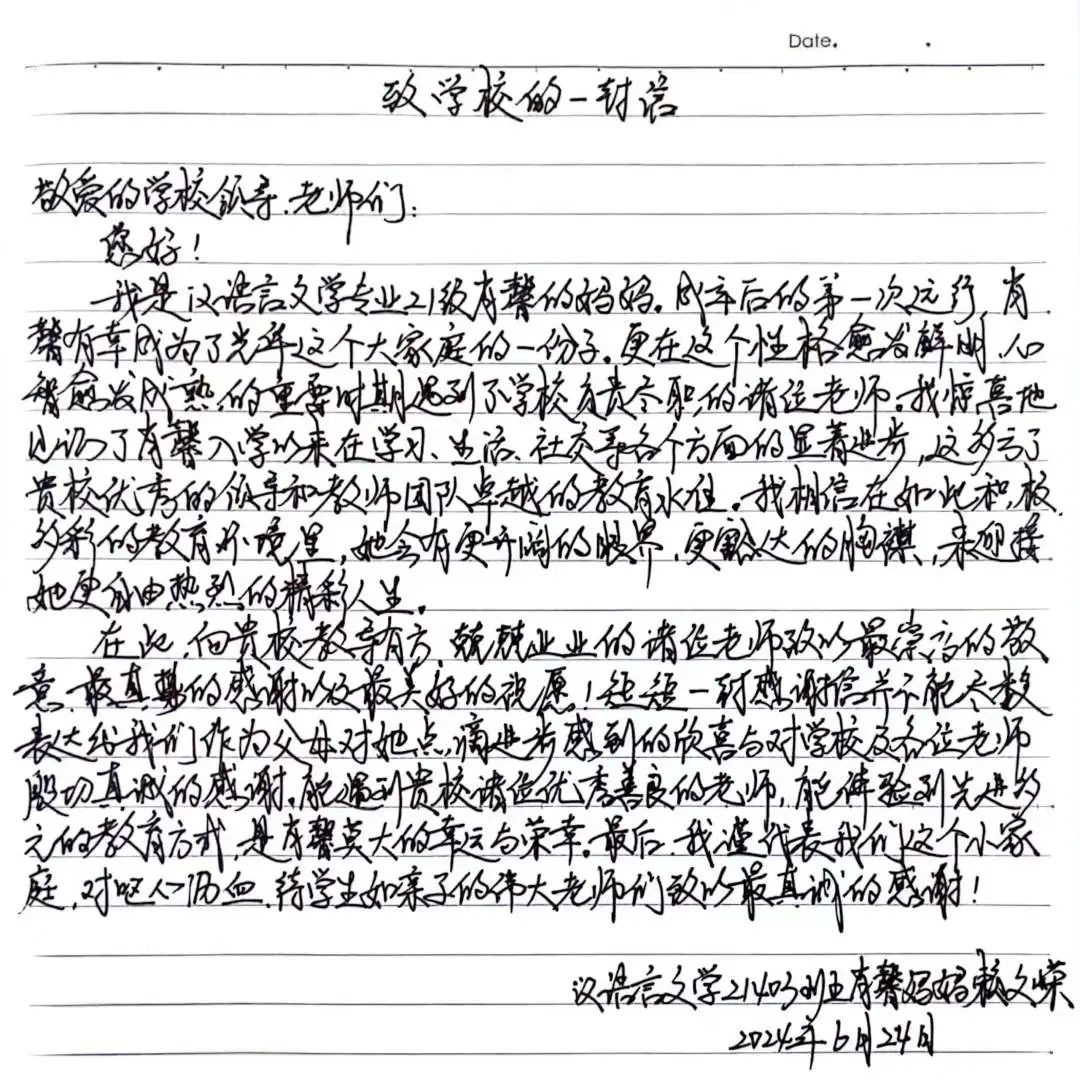 Date.
致学校的一封信
敬爱的学校领导、老师们:
您好!
我是汉语言文学专业21级肖馨的妈妈。成年后的第一次远行,肖
馨有幸成为了光华这个大家庭的一份子。更在这个性格愈发鲜明、心
智愈发成熟的重要时期遇到了学校负责尽职的诸位老师。我惊喜地
见证了肖馨入学以来在学习、生活、社交等各个方面的显著进步,这多亏了
贵校优秀的领导和教师团队卓越的教育水准。我相信在如此积极
多彩的教育环境里,她会有更开阔的眼界,更豁达的胸襟,来迎接
她更自由热烈的精彩人生。
在此,向贵校教导有方、兢兢业业的诸位老师致以最崇高的敬
意、最真挚的感谢以及最美好的祝愿!短短一封感谢信并不能尽数
表达出我们作为父母对她点滴进步感到的欣喜与对学校及各位老师
殷切真诚的感谢。能遇到贵校诸位优秀善良的老师,能体验到先进多
元的教育方式,是肖馨莫大的幸运与荣幸。最后,我谨代表我们这个小家
庭,对呕心沥血、待学生如亲子的伟大老师们致以最真诚的感谢!
汉语言文学21403班肖馨妈妈赖文荣
2024年6月24日